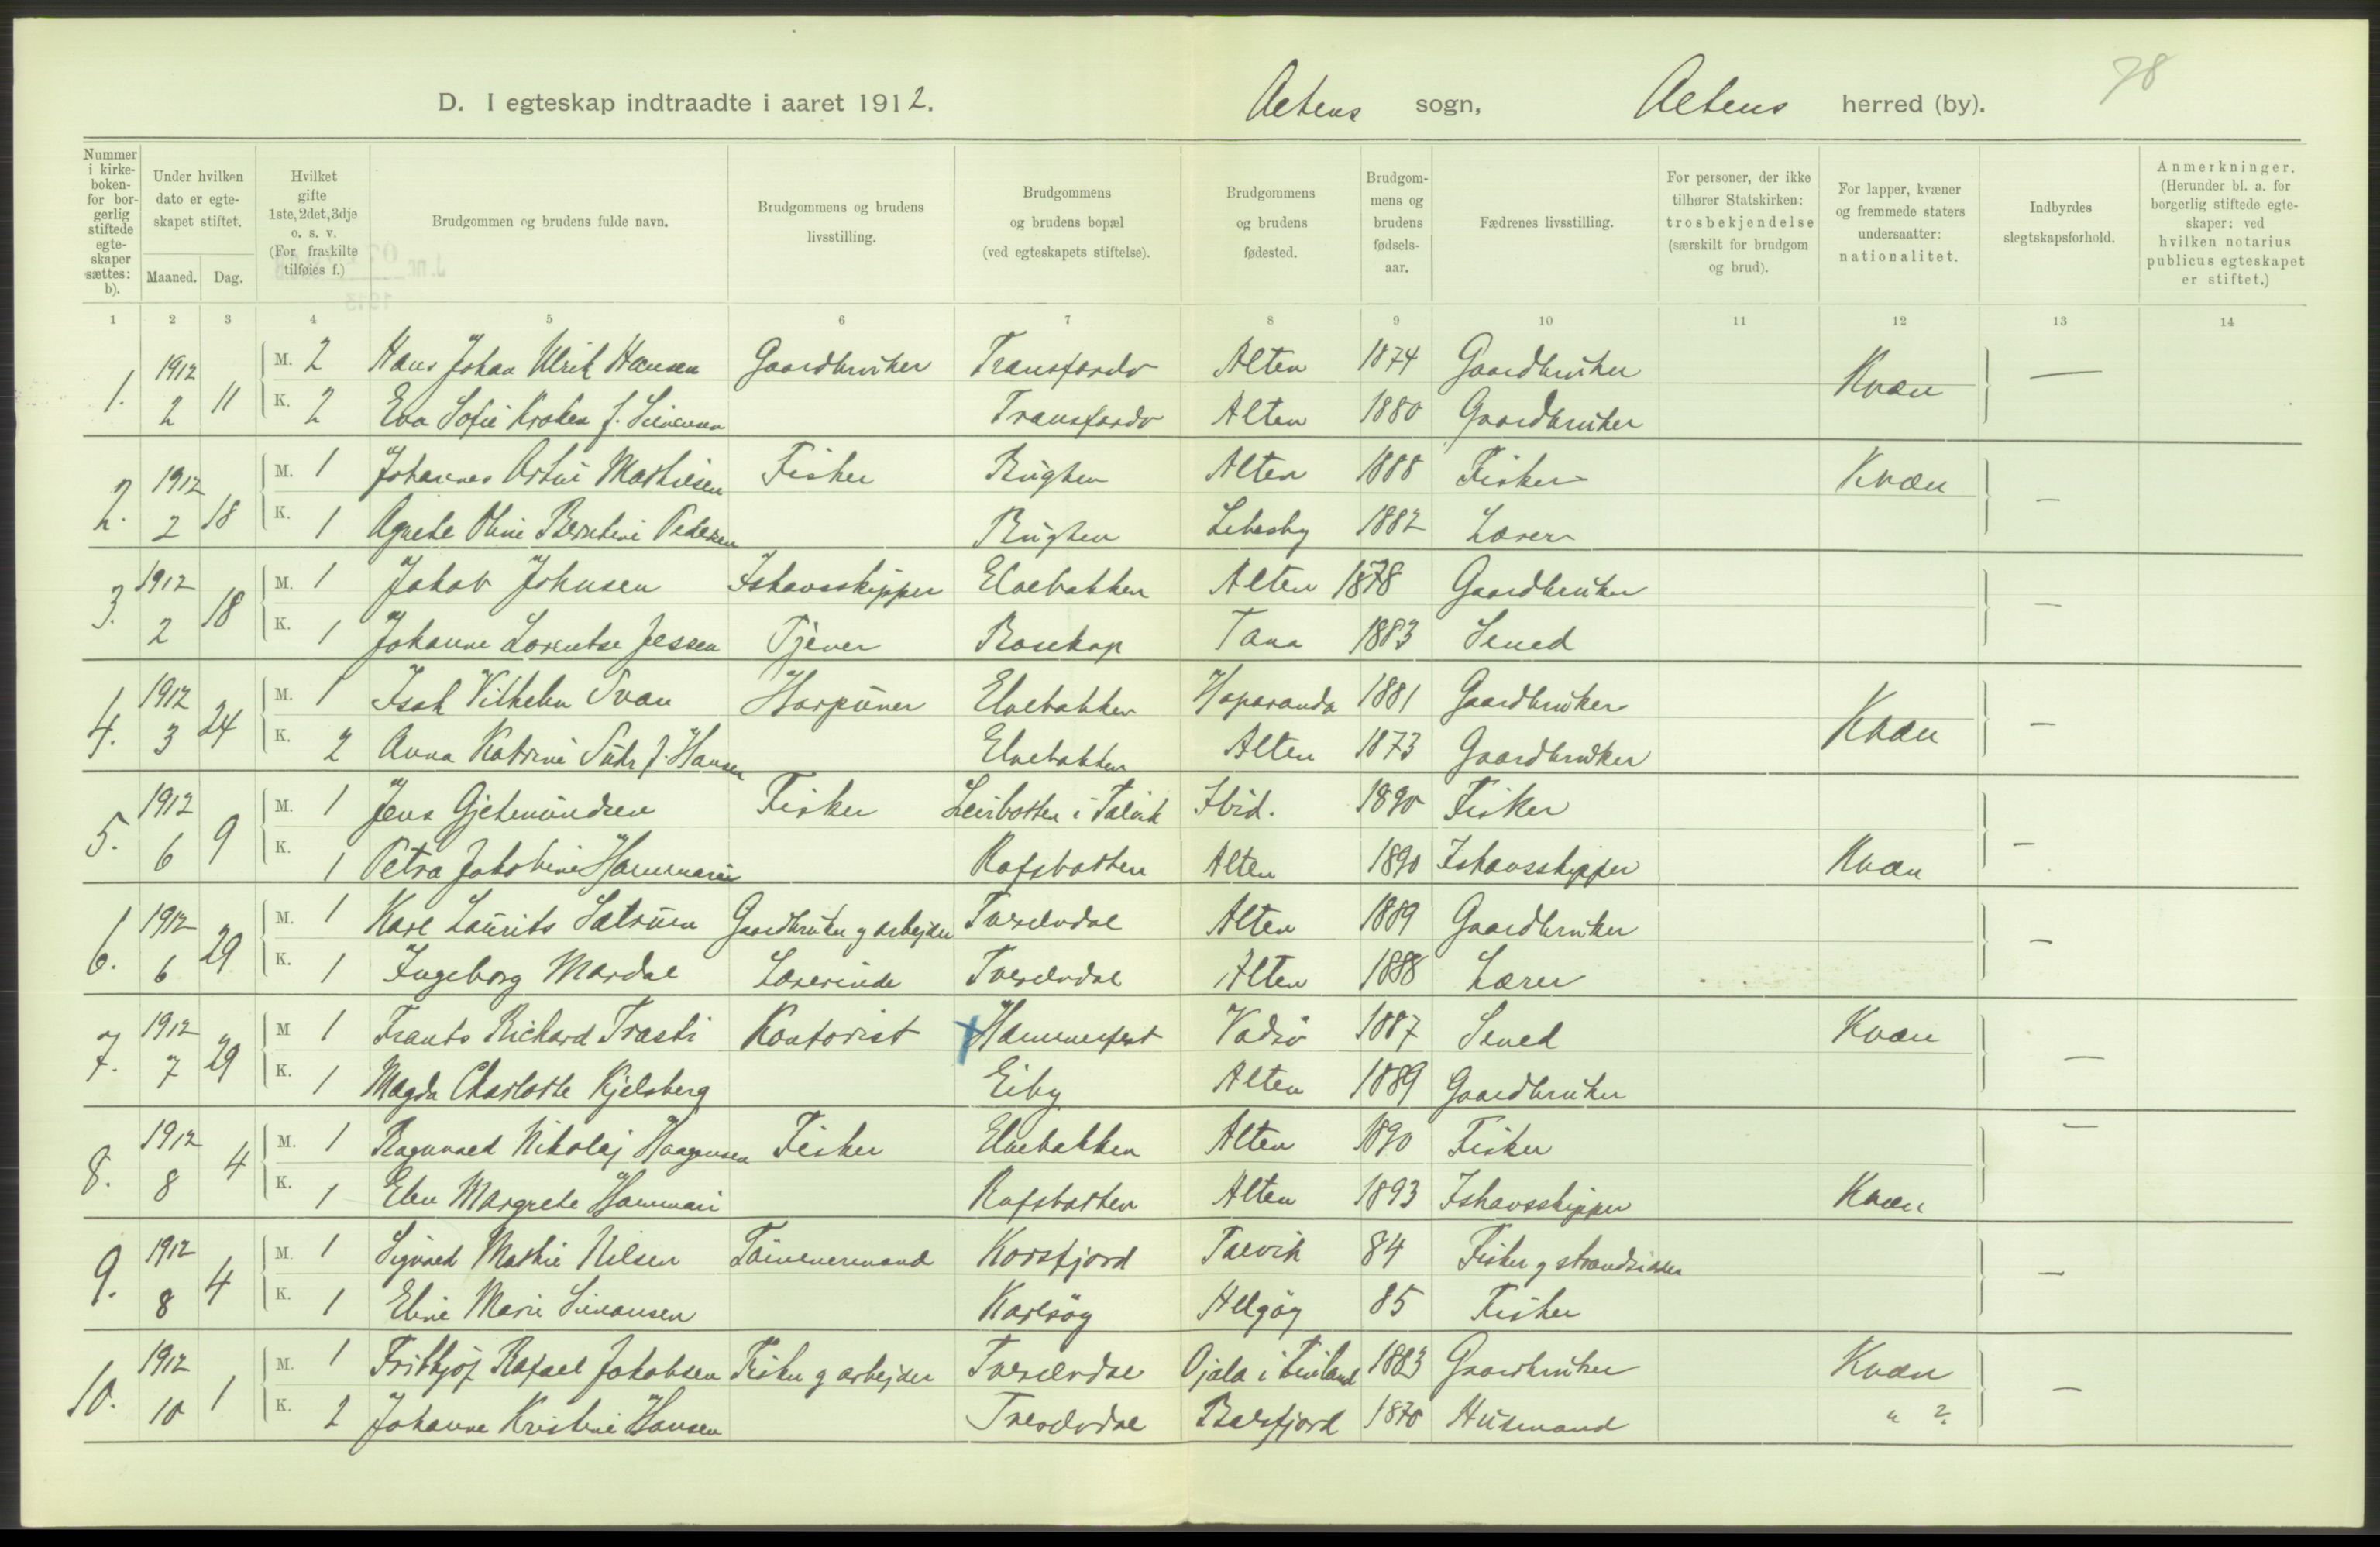 78
D. I egteskap indtraadte i aaret 1912. Altens sogn, Altens herred (by).
Nummer i kirkeboken- for borgerlig stiftede egteskaper sættes: b). | Under hvilken dato er egteskapet stiftet. Maaned. Dag. | Hvilket gifte 1ste, 2det, 3dje o. s. v. (For fraskilte tilføies f.) | Brudgommen og brudens fulde navn. | Brudgommens og brudens livsstilling. | Brudgommens og brudens bopæl (ved egteskapets stiftelse). | Brudgommens og brudens fødested. | Brudgommens og brudens fødselsaar. | Fædrenes livsstilling. | For personer, der ikke tilhører Statskirken: trosbekjendelse (særskilt for brudgom og brud). | For lapper, kvæner og fremmede staters undersaatter: nationalitet. | Indbyrdes slegtskapsforhold. | Anmerkninger. (Herunder bl. a. for borgerlig stiftede egteskaper: ved hvilken notarius publicus egteskapet er stiftet.)
1 2 3 4 5 6 7 8 9 10 11 12 13 14
1. 1912 2 11 M. 2 Hans Johan Ulrik Hansen Gaardbruker Transfarelv Alten 1874 Gaardbruker Kvæn —
K. 2 Eva Sofie Kroken f. Simensen Transfarelv Alten 1880 Gaardbruker
2. 1912 2 18 M. 1 Johannes Artur Mathisen Fisker Bugten Alten 1888 Fisker Kvæn —
K. 1 Agnete Oline Berntine Pedersen Bugten Lebesby 1882 Lærer
3. 1912 2 18 M. 1 Jakob Johnsen Ishavsskipper Elvebakken Alten 1878 Gaardbruker —
K. 1 Johanne Lorentse Jessen Tjener Bosekop Tana 1883 Smed
4. 1912 3 24 M. 1 Isak Vilhelm Svan Harpuner Elvebakken Haparanda 1881 Gaardbruker Kvæn —
K. 2 Anna Katrine Suhr f. Hansen Elvebakken Alten 1873 Gaardbruker
5. 1912 6 9 M. 1 Jens Gjetmundsen Fisker Leirbotten i Talvik Ibid. 1890 Fisker —
K. 1 Petra Jakobine Hammari Rafsbotten Alten 1890 Ishavsskipper Kvæn
6. 1912 6 29 M. 1 Karl Laurits Gaardbruker g arbejder Tverelvdal Alten 1889 Gaardbruker —
K. 1 Ingeborg Mardal Lærerinde Tverelvdal Alten 1888 Lærer
7. 1912 7 29 M 1 Frants Richard Trasti Kontorist Hammerfest Vadsø 1887 Smed Kvæn —
K. 1 Magda Charlotte Kjelsberg Eiby Alten 1889 Gaardbruker
8. 1912 8 4 M. 1 Ragnvald Nikolaj Haagensen Fisker Elvebakken Alten 1890 Fisker —
K. 1 Elen Margrete Hammari Rafsbotten Alten 1893 Ishavsskipper Kvæn
9. 1912 8 4 M. 1 Sigvald Mathis Nilsen Tømmermand Korsfjord Talvik 84 Fisker g strandsidder —
K. 1 Eline Marie Simonsen Karlsøy Helgøy 85 Fisker
10. 1912 10 1 M. 1 Frithjof Rafael Jakobsen Fisker g arbejder Tverelvdal Ojala i Finland 1883 Gaardbruker Kvæn —
K. 2 Johanne Kristine Hansen Tverelvdal Balsfjord 1870 Husmand " ?